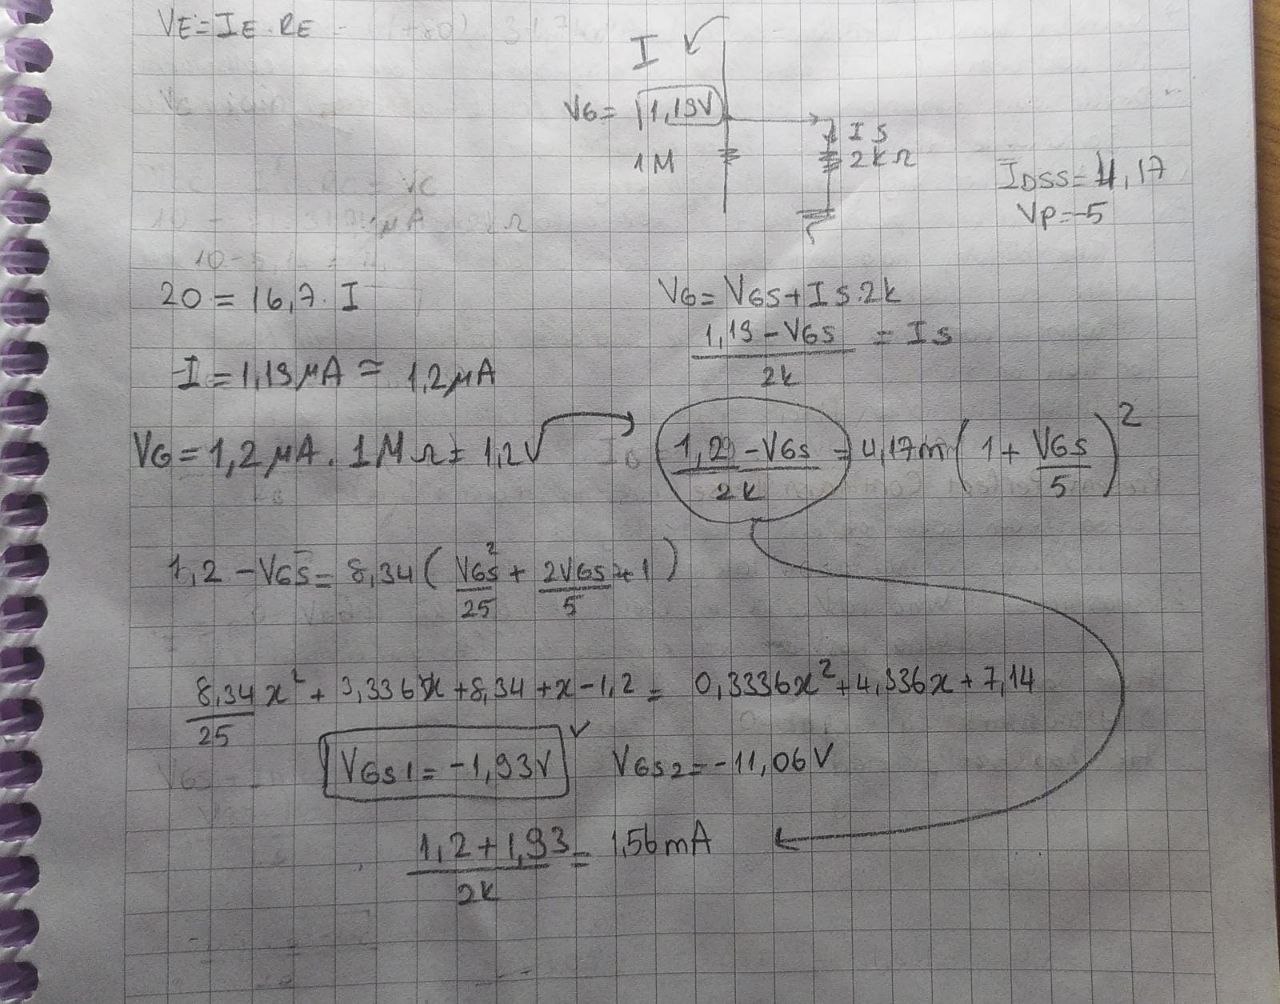 VE=IE.RE
I
VG= 1,19V
IS
1M
2kΩ
IDSS=4,17
VP=-5
20=16,7.I
VG=VGS+IS.2k
1,19-VGS/2k = IS
I=1,19μA≅1,2μA
VG=1,2μA.1MΩ=1,2V
1,2-VGS/2k = 4,17m(1+VGS/5)²
1,2-VGS=8,34(VGS²/25+2VGS/5+1)
8,34/25x²+3,336x+8,34+x-1,2=0,3336x²+4,336x+7,14
VGS1=-1,93V VGS2=-11,06V
1,2+1,93/2k = 1,56mA